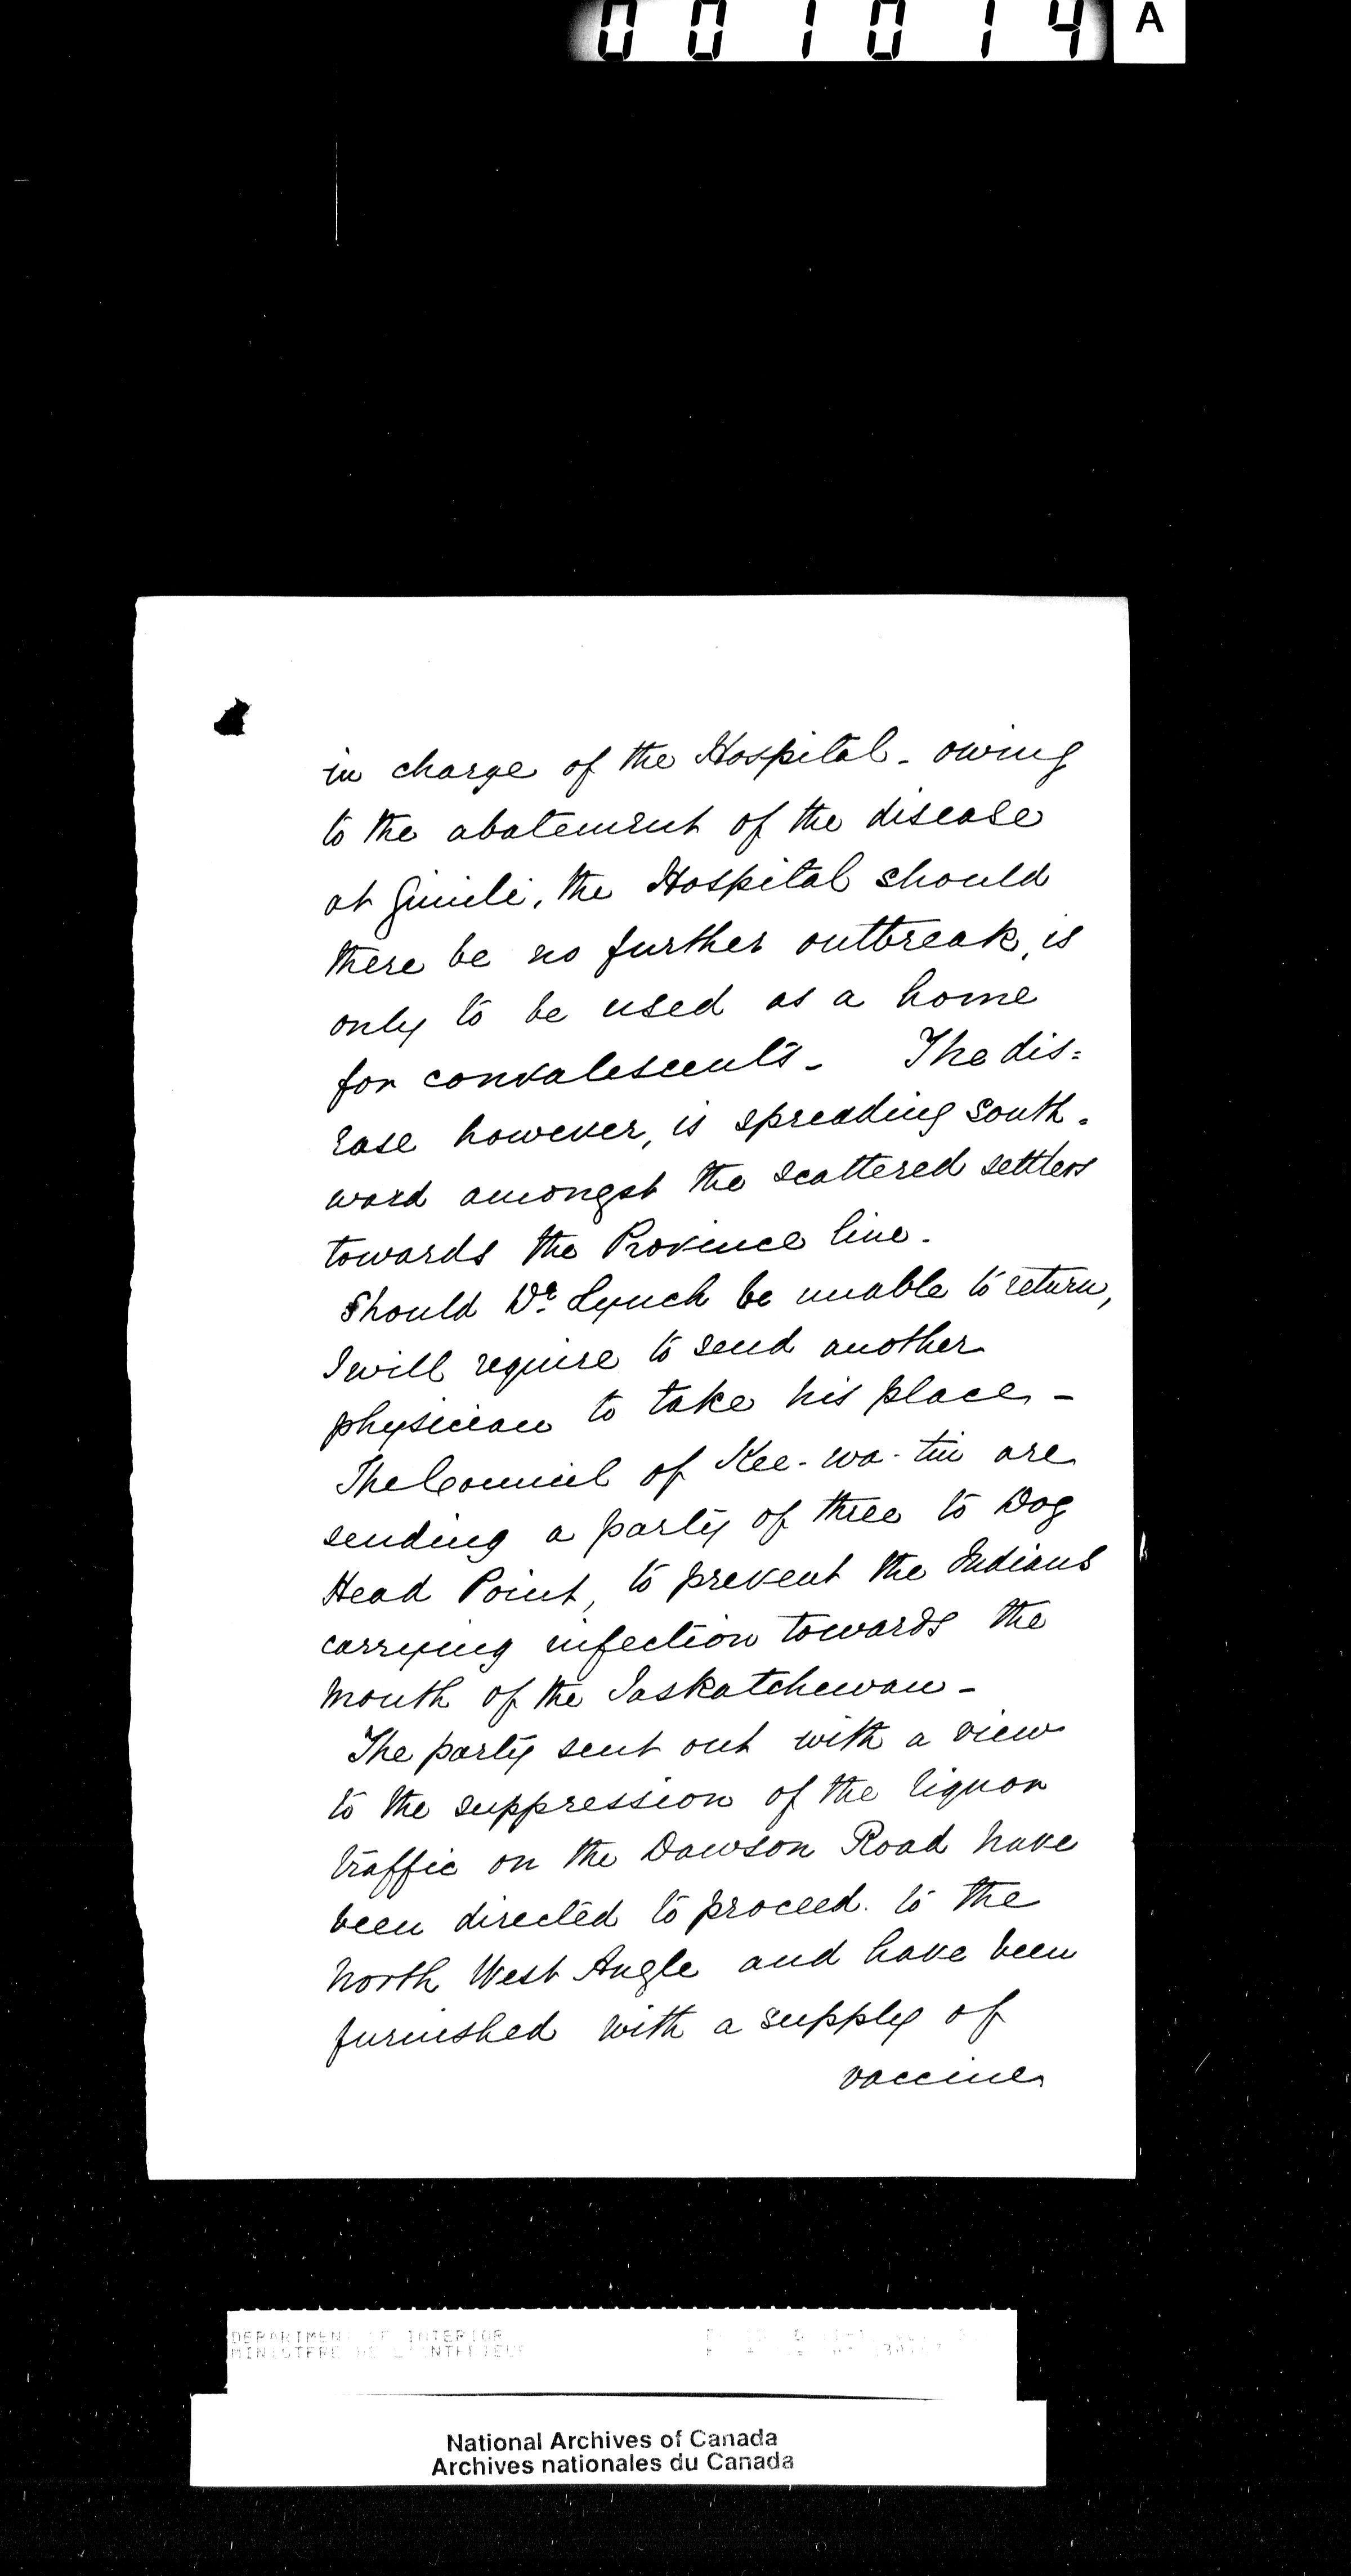 001014 A
in charge of the Hospital - owing
to the abatement of the disease
at Gimli, the Hospital should
there be no further outbreak, is
only to be used as a home
for convalescents - The dis=
ease however, is spreading south-
ward amongst the scattered settlers
towards the Province line.
Should Dr. Lynch be unable to return,
I will require to send another
physician to take his place -
The Council of Kee-wa-tin are
sending a party of three to Dog
Head Point, to prevent the Indians
carrying infection towards the
mouth of the Saskatchewan -
The party sent out with a view
to the suppression of the liquor
traffic on the Dawson Road have
been directed to proceed to the
North West Angle and have been
furnished with a supply of
vaccine
DEPARTMENT OF INTERIOR
MINISTERE DE L'INTERIEUR
National Archives of Canada
Archives nationales du Canada